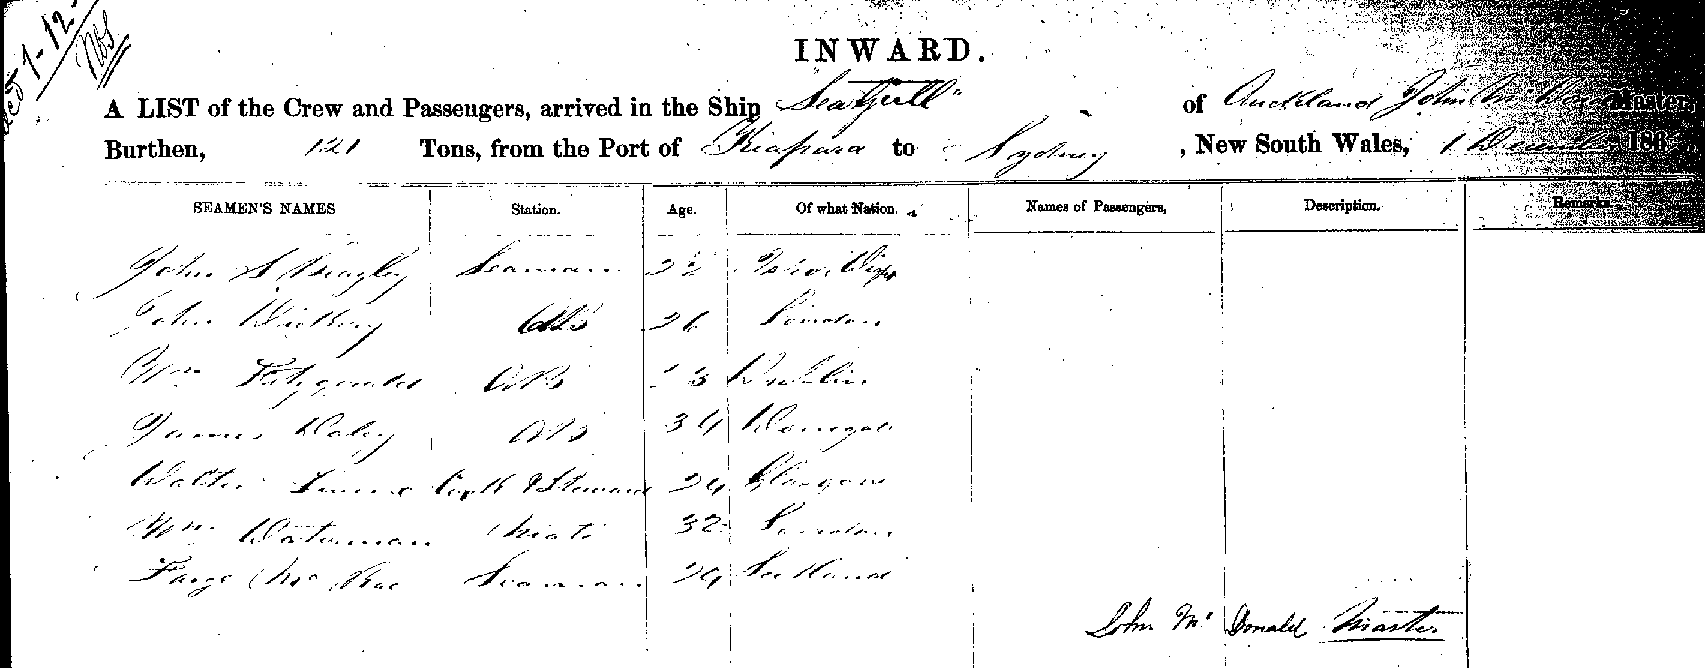 1-12-
INWARD.
A LIST of the Crew and Passengers, arrived in the Ship "Seagull" of Auckland John Master,
Burthen, 121 Tons, from the Port of to Sydney , New South Wales, 1 December 186
SEAMEN'S NAMES Station. Age. Of what Nation. Names of Passengers, Description. Remarks.
John S. Seaman 22
John AB 26 London
Wm Fitzgerald AB 23 Dublin
James Daley AB 34 Donegal
Walter Cook & Steward 24 Glasgow
Wm Waterman Mate 32 London
McRae Seaman 24 Scotland
John Mc Donald Master